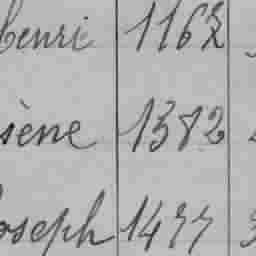 Henri 1162
sène 1382
oseph 1477